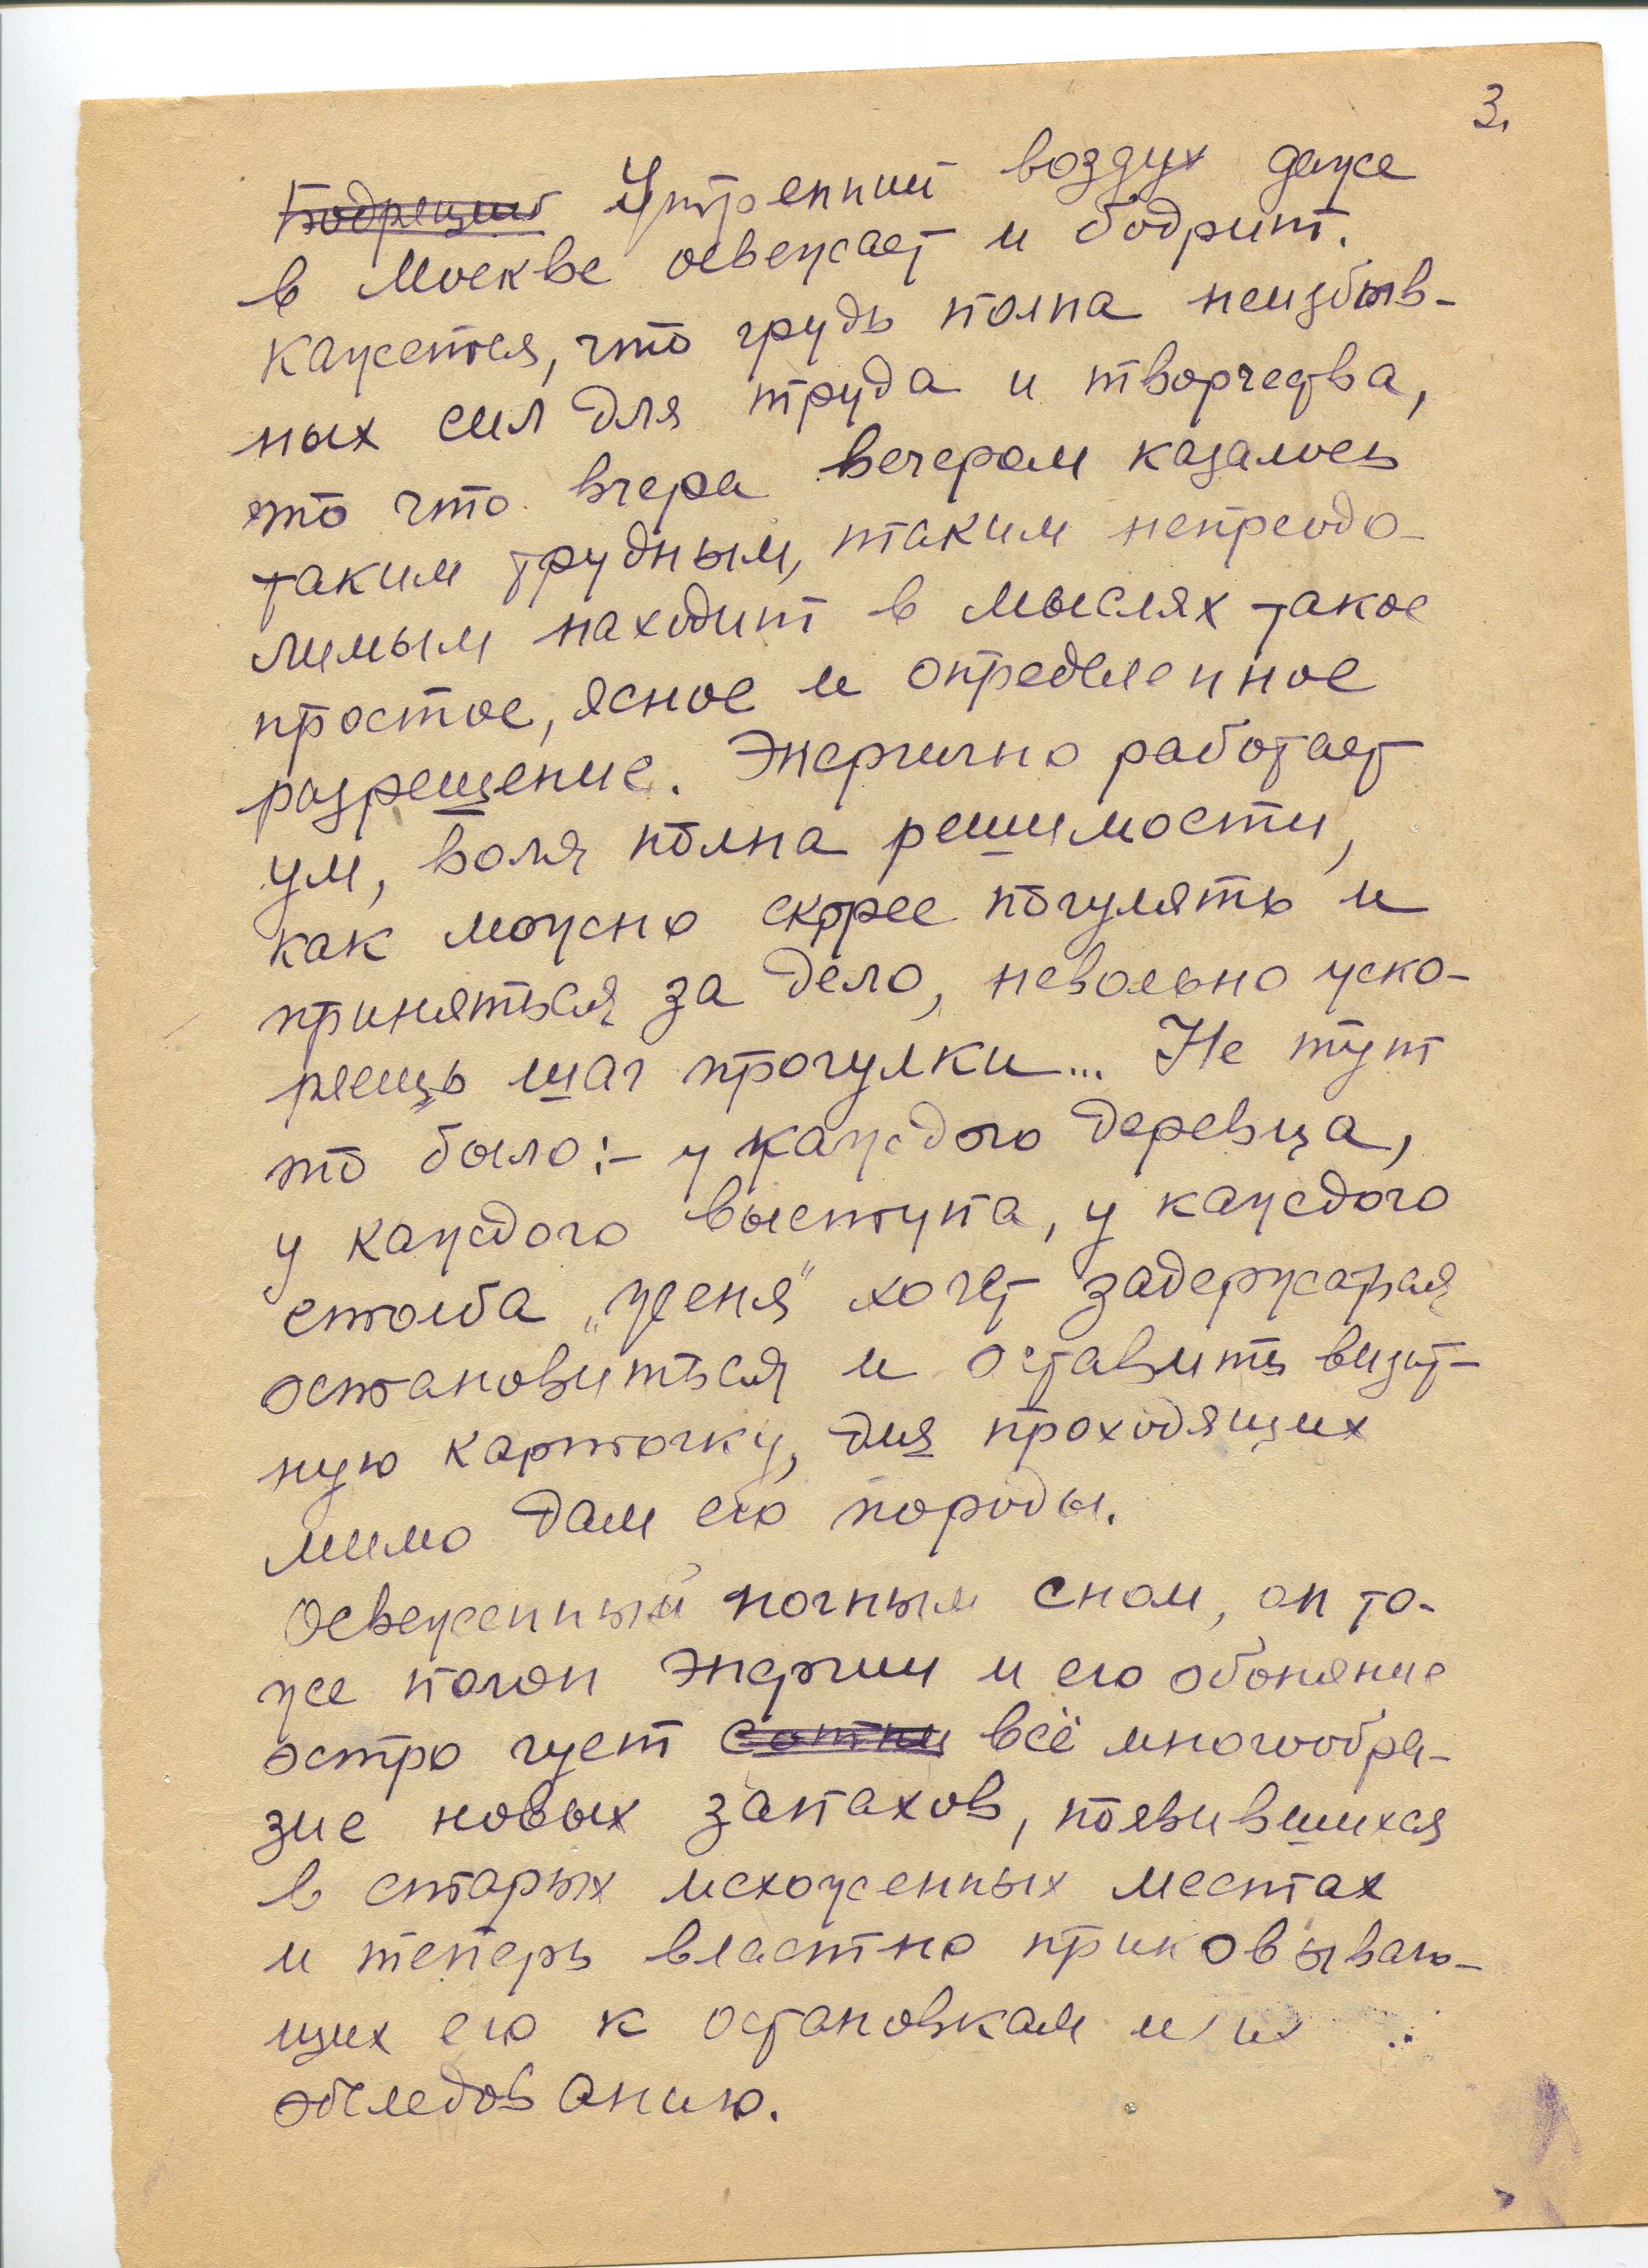 3.
Бодрящий Утренний воздух даже
в Москве освежает и бодрит.
Кажется, что грудь полна неизбыв-
ных сил для труда и творчества,
то что вчера вечером казалось
таким трудным, таким непреодо-
лимым находит в мыслях такое
простое, ясное и определенное
разрешение. Энергично работает
ум, воля полна решимости,
как можно скорее погулять и
приняться за дело, невольно уско-
ряешь шаг прогулки... Не тут
то было:- у каждого деревца,
у каждого выступа, у каждого
столба „женя" хочет задержаться,
остановиться и оставить визит-
ную карточку, для проходящих
мимо дам его породы.
Освеженный ночным сном, он то-
же полон энергии и его обоняние
остро чует сотни всё многообра-
зие новых запахов, появившихся
в старых исхоженных местах
и теперь властно приковываю-
щих его к остановкам и их
обследованию.